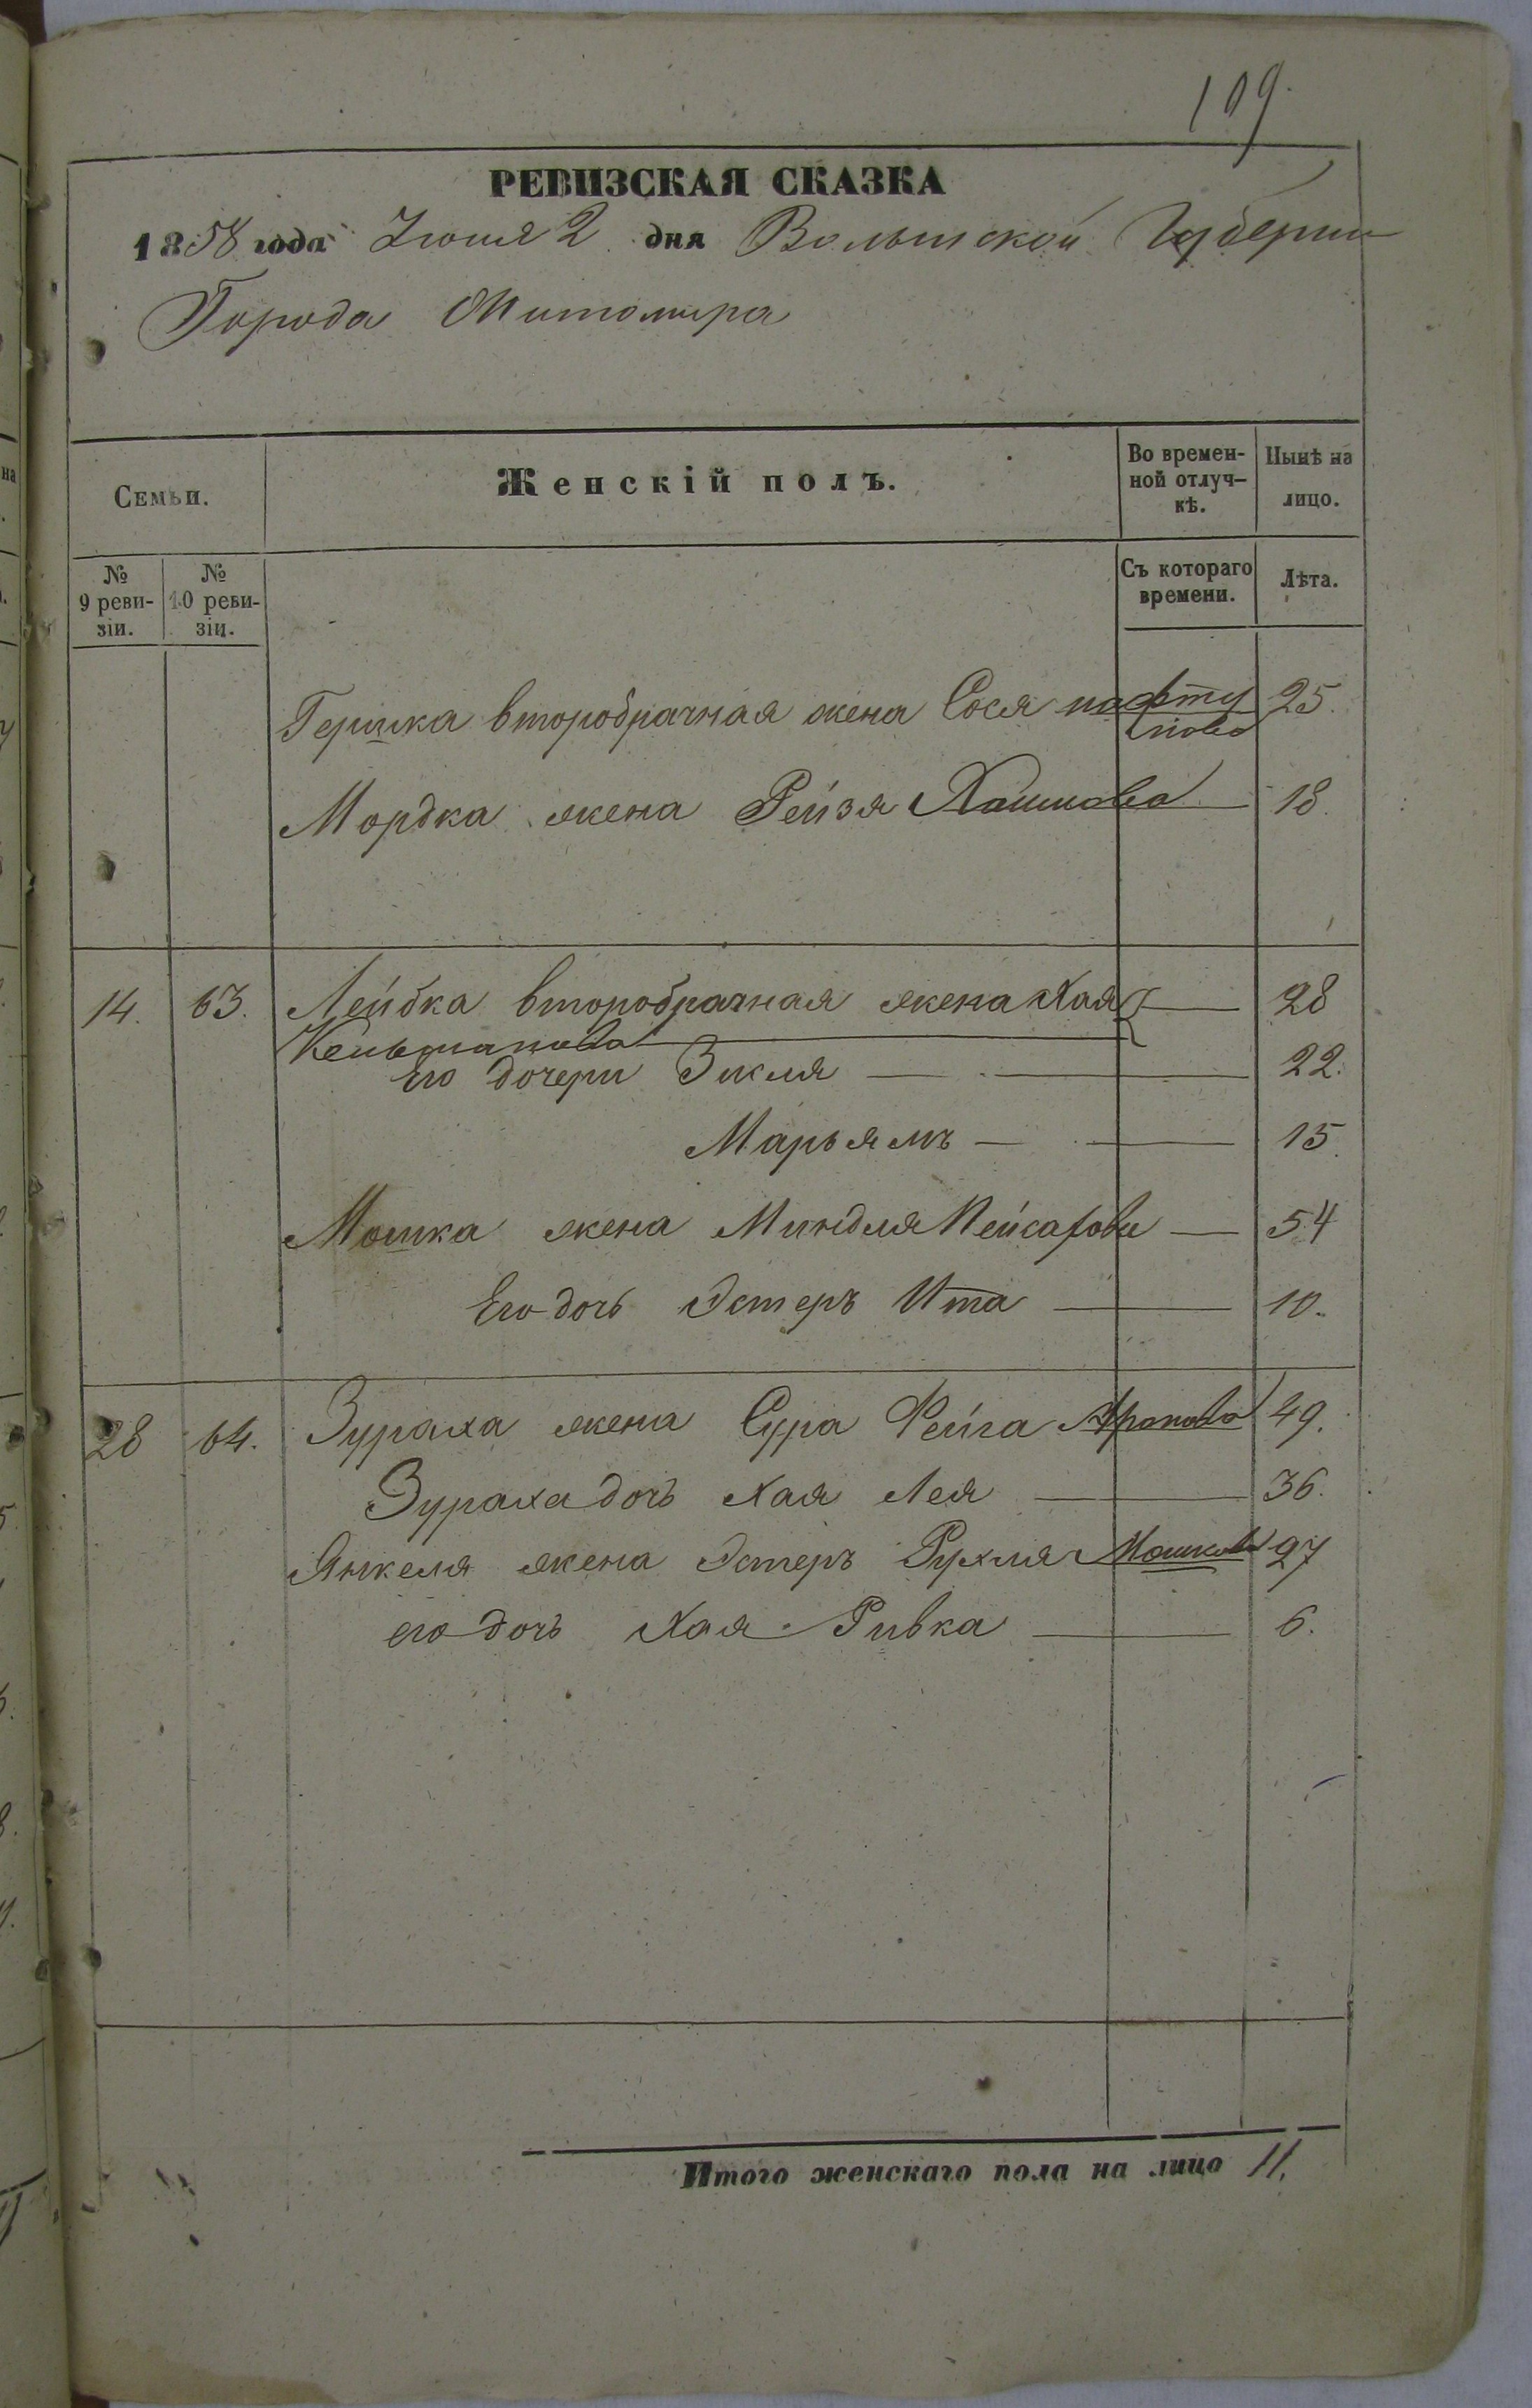 109.
РЕВИЗСКАЯ СКАЗКА
1858 года Іюня 2 дня Волынской Губерніи
Города Житомира
Семьи.
Женскій полъ.
Во времен-
ной отлуч-
кѣ.
Нынѣ на
лицо.
№
9 реви-
зіи.
№
10 реви-
зіи.
Съ котораго
времени.
Лѣта.
Гершка второбрачная жена Сося нафту 25.
лиова
Мордка жена Рейзя Хаимова 18.
14. 63. Лейбка второбрачная жена Хая 28
Кельманова
Его дочери Зисля 22.
Марьямъ 15.
Мошка жена Миндля Пейсахова 54
Его дочь Эстеръ Ита 10.
28 64. Зураха жена Сура Фейга Аронова 49.
Зураха дочь Хая Лея 36.
Янкеля жена Эстеръ Рухля Мошкова 27
его дочь Хая Ривка 6.
Итого женскаго пола на лицо 11.